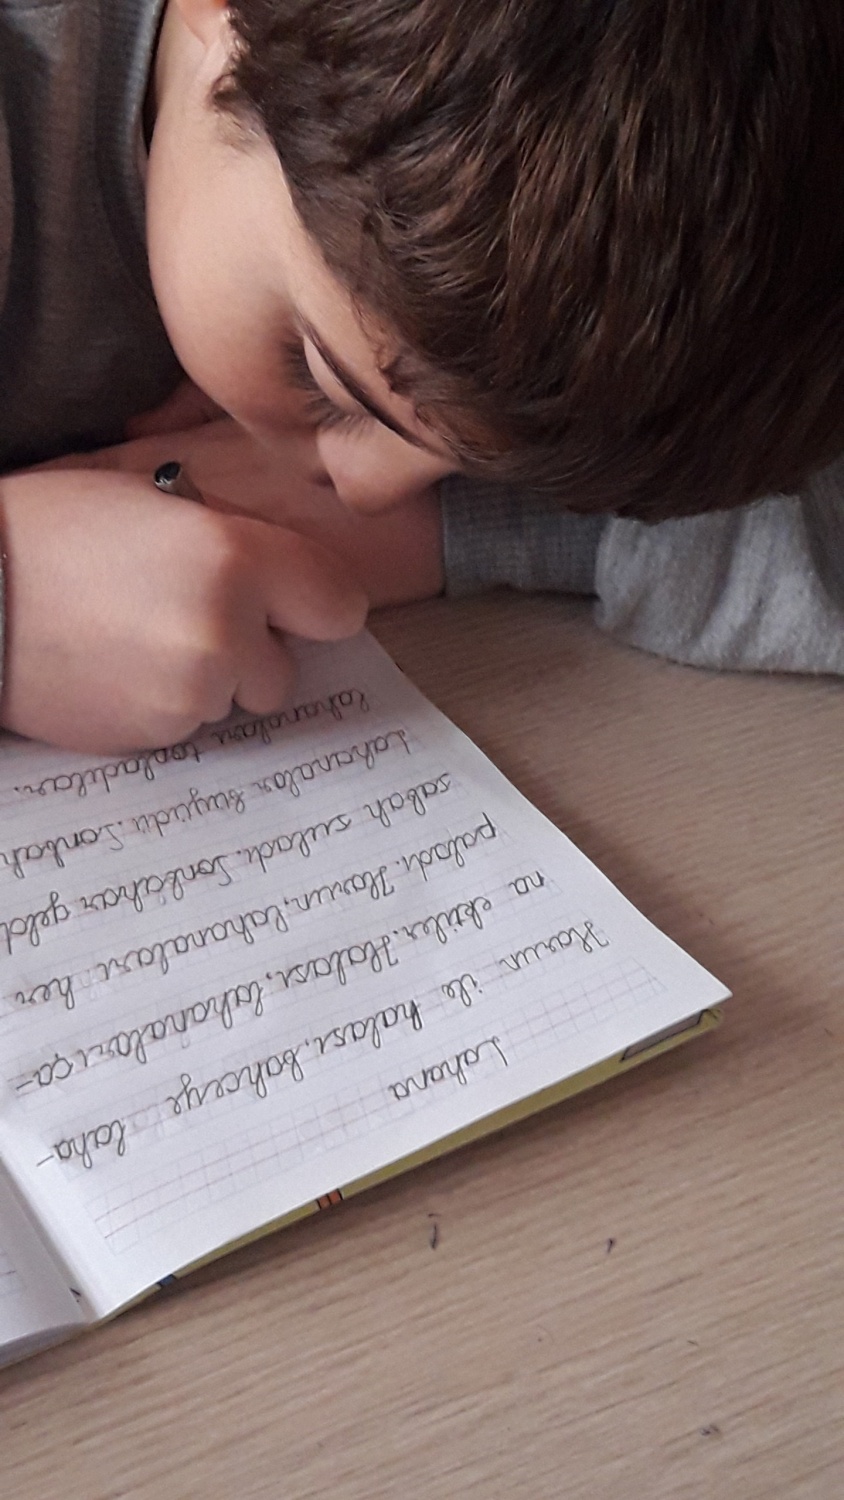 Lahana
Harun ile halası, bahçeye laha-
na ektiler. Halası, lahanaları ça-
paladı. Harun, lahanaları her
sabah suladı. Sonbahar geldi
Lahanalar büyüdü. Sonbah
lahanaları topladılar.